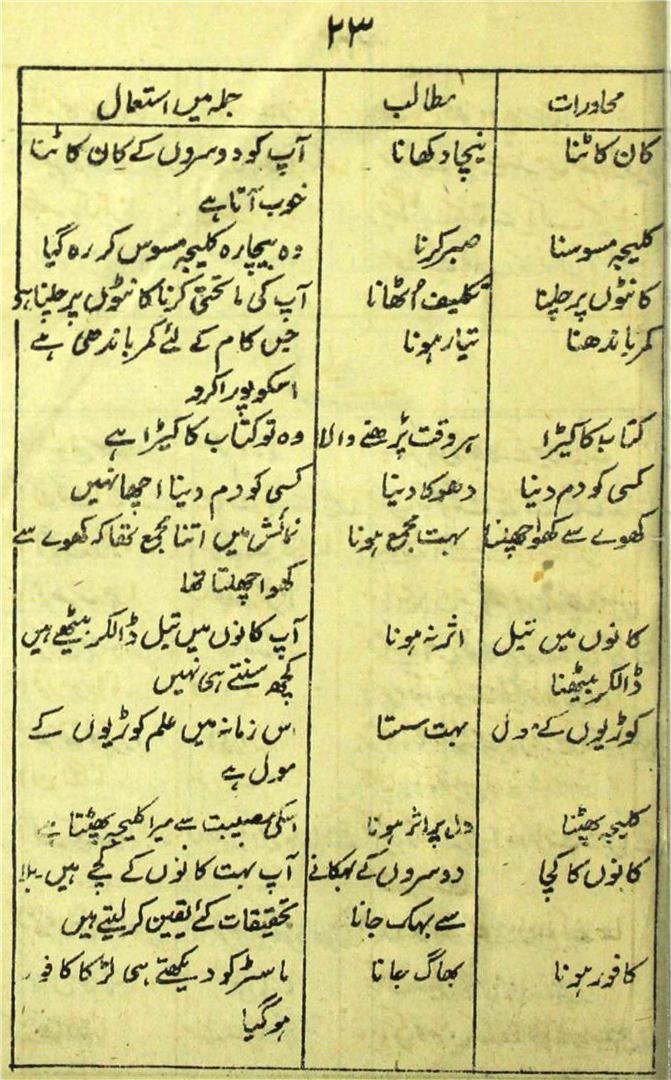 ۲۳
محاورات مطالب جملہ میں استعمال
کان کاٹنا نیچا دکھانا آپ کو دوسروں کے کان کاٹنا
خوب آتا ہے
کلیجہ مسوسنا صبر کرنا وہ بیچارہ کلیجہ مسوس کر رہ گیا
کانٹوں پر چلنا تکلیف اٹھانا آپ کی ماتحتی کرنا کانٹوں پر چلنا ہے
کمر باندھنا تیار ہونا جس کام کے لئے کمر باندھی ہے
اسکو پورا کرو
کتاب کا کیڑا ہر وقت پڑھنے والا وہ تو کتاب کا کیڑا ہے
کسی کو دم دینا دھوکا دینا کسی کو دم دینا اچھا نہیں
کھوے سے کھوا چھلنا بہت مجمع ہونا نمائش میں اتنا مجمع تھا کہ کھوے سے
کھوا چھلتا تھا
کانوں میں تیل اثر نہ ہونا آپ کانوں میں تیل ڈالکر بیٹھے ہیں
ڈالکر بیٹھنا کچھ سنتے ہی نہیں
کوڑیوں کے مول بہت سستا اس زمانہ میں علم کوڑیوں کے
مول ہے
کلیجہ پھٹنا دل پر اثر ہونا اسکی مصیبت سے میرا کلیجہ پھٹتا ہے
کانوں کا کچا دوسروں کے بہکانے آپ بہت کانوں کے کچے ہیں۔ بلا
سے بہک جانا تحقیقات کے یقین کر لیتے ہیں
کافور ہونا بھاگ جانا ماسٹر کو دیکھتے ہی لڑکا کافور
ہو گیا